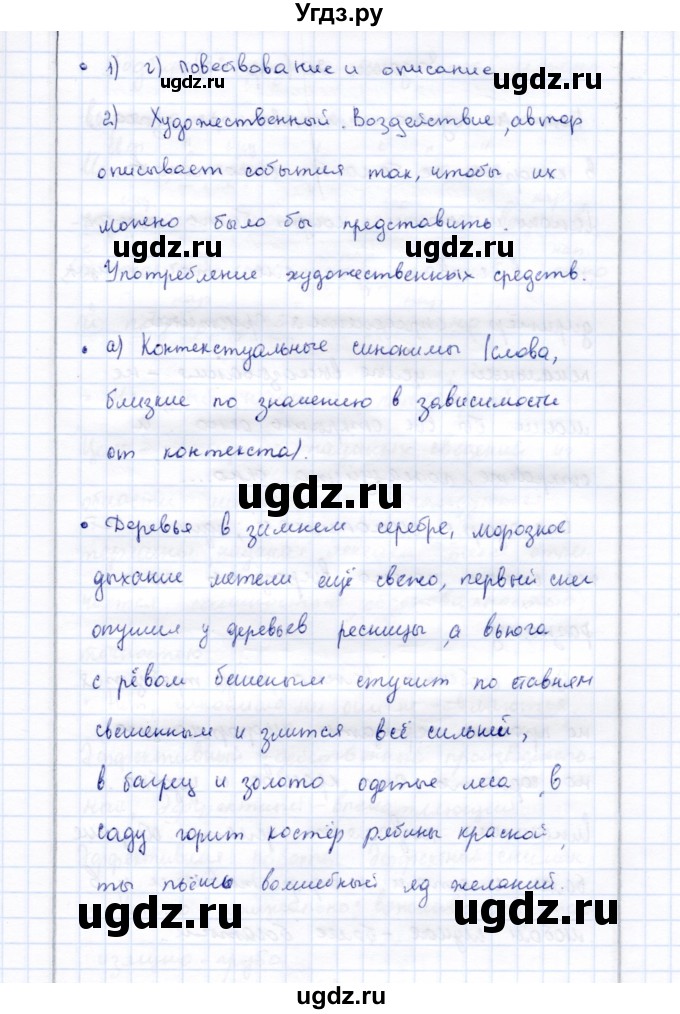 Угдз.ру
• 1) г) Повествование и описание
ugdz.ru ugdz.ru
2) Художественный. Воздействие, автор
описывает события так, чтобы их
можно было бы представить.
ugdz.ru ugdz.ru
Употребление художественных средств.
• а) Контекстуальные синонимы (слова,
близкие по значению в зависимости
от контекста).
ugdz.ru
• Деревья в зимнем серебре, морозное
дыхание метели ещё свежо, первый снег
опушил у деревьев ресницы, а вьюга
с рёвом бешеным стучит по ставням
свешенным и злится всё сильней,
в багрец и золото одетые леса, в
саду горит костёр рябины красной,
ты пьёшь волшебный яд желаний.
ugdz.ru ugdz.ru
ugdz.ru